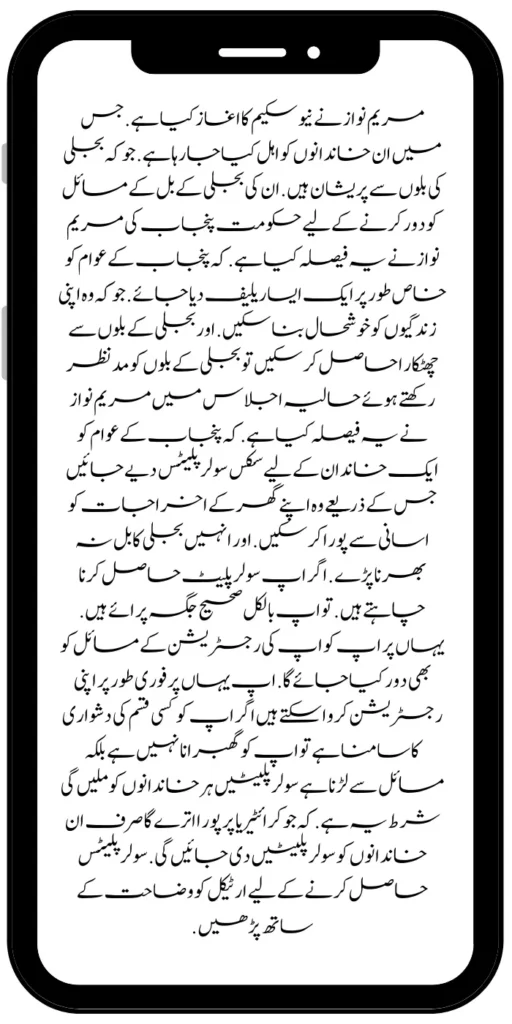 مریم نواز نے نیو سکیم کا اغاز کیا ہے. جس
میں ان خاندانوں کو اہل کیا جا رہا ہے. جو کہ بجلی
کی بلوں سے پریشان ہیں. ان کی بجلی کے بل کے مسائل
کو دور کرنے کے لیے حکومت پنجاب کی مریم
نواز نے یہ فیصلہ کیا ہے. کہ پنجاب کے عوام کو
خاص طور پر ایک ایسا ریلیف دیا جائے. جو کہ وہ اپنی
زندگیوں کو خوشحال بنا سکیں. اور بجلی کے بلوں سے
چھٹکارا حاصل کر سکیں تو بجلی کے بلوں کو مدنظر
رکھتے ہوئے حالیہ اجلاس میں مریم نواز
نے یہ فیصلہ کیا ہے. کہ پنجاب کے عوام کو
ایک خاندان کے لیے سکس سولر پلیٹس دیے جائیں
جس کے ذریعے وہ اپنے گھر کے اخراجات کو
اسانی سے پورا کر سکیں. اور انہیں بجلی کا بل نہ
بھرنا پڑے. اگر اپ سولر پلیٹ حاصل کرنا
چاہتے ہیں. تو اپ بالکل صحیح جگہ پر ائے ہیں.
یہاں پر اپ کو اپ کی رجسٹریشن کے مسائل کو
بھی دور کیا جائے گا. اپ یہاں پر فوری طور پر اپنی
رجسٹریشن کروا سکتے ہیں اگر اپ کو کسی قسم کی دشواری
کا سامنا ہے تو اپ کو گھبرانا نہیں ہے بلکہ
مسائل سے لڑنا ہے سولر پلیٹیں ہر خاندانوں کو ملیں گی
شرط یہ ہے. کہ جو کرائٹیریا پر پورا اترے گا صرف ان
خاندانوں کو سولر پلیٹیں دی جائیں گی. سولر پلیٹس
حاصل کرنے کے لیے ارٹیکل کو وضاحت کے
ساتھ پڑھیں.